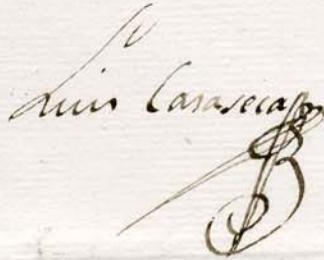 Luis Casaseca